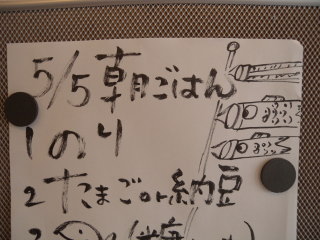 5/5 朝ごはん
1 のり
2 たまごor納豆
3